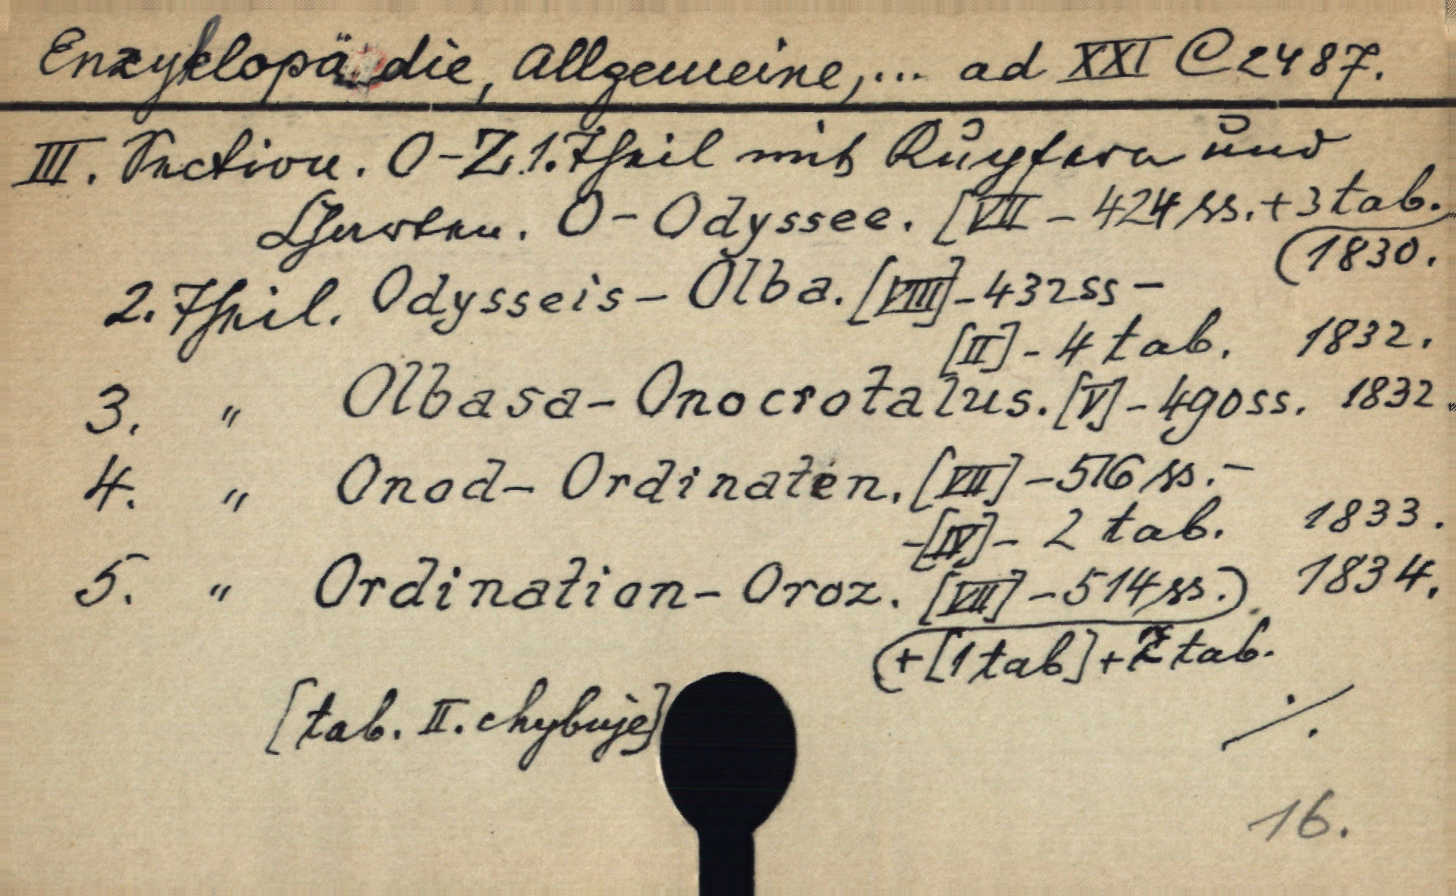 Enzyklopädie, Allgemeine,... ad XXI C 2487.
III. Section. O-Z. 1. Theil mit Kupfern und
Charten. O-Odyssee. [VII - 424 ss. + 3 tab.
1830.
2. Theil. Odysseis - Olba. [VIII] - 432 ss -
[II] - 4 tab. 1832.
3. " Olbasa - Onocrotalus. [V] - 490 ss. 1832.
4. " Onod - Ordinaten. [VII] - 516 ss. -
- [IV] - 2 tab. 1833.
5. " Ordination - Oroz. [VII] - 514 ss. 1834.
+ [1 tab] + 2 tab.
[tab. II. chybuje]
./.
16.